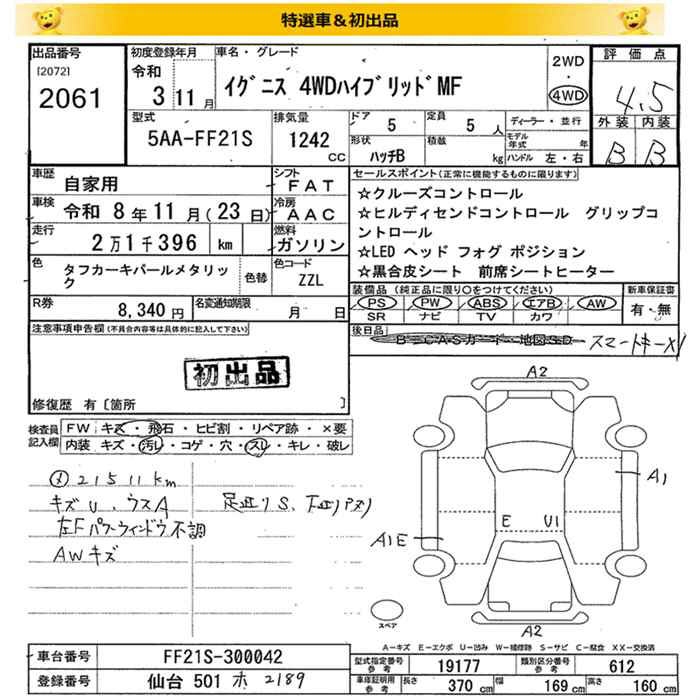 特選車＆初出品
出品番号 [2072] 2061
初度登録年月 令和 3 11月
車名・グレード イグニス 4WDハイブリッドMF
2WD ・ 4WD
評価点 4.5
型式 5AA-FF21S
排気量 1242 CC
ドア 5 定員 5 人
形状 ハッチB 積載 kg
ディーラー・並行
モデル年式 年
ハンドル 左・右
外装 内装
B B
車歴 自家用
シフト FAT
車検 令和 8年11月(23日)
冷房 AAC
走行 2万1千396 km
燃料 ガソリン
色 タフカーキパールメタリック 色替
色コード ZZL
R券 8,340円
名変通知期限 月 日
セールスポイント(正常に機能するものに限ります)
☆クルーズコントロール
☆ヒルディセンドコントロール グリップコ
ントロール
☆LED ヘッド フォグ ポジション
☆黒合皮シート 前席シートヒーター
装備品(純正品に限り〇をつけてください)
新車保証書
PS PW ABS エアB AW
SR ナビ TV カワ
有・無
注意事項申告欄(不具合内容等は具体的に記入して下さい)
後日品 B-CASカード・地図SD スマートキーX1
初出品
修復歴 有[箇所 ]
検査員記入欄
FW キズ・飛石・ヒビ割・リペア跡・×要
内装 キズ・汚レ・コゲ・穴・スレ・キレ・破レ
メ 21511km
キズU、ウスA 足廻りS、下廻りパスリ
左Fパワーウィンドウ不調
AWキズ
A2
A1
E U1
A1E
スペア
A2
A-キズ E-エクボ U-凹み W-補修跡 S-サビ C-腐食 XX-交換済
車台番号 FF21S-300042
型式指定番号 参考 19177 類別区分番号 参考 612
登録番号 仙台 501 ホ 2189
車庫証明用 参考 長さ 370 cm 幅 169 cm 高さ 160 cm